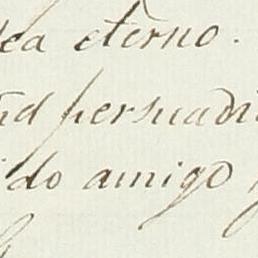 ea eterno.
persuadi
do amigo